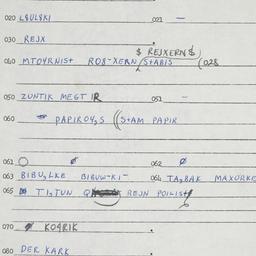 020 LSULSKI 021 –
030 REJX
$ REJXERN $
040 MTOYRNIST ROS-XERN/STABIS (028
050 ZUNTIK MEGT IR 051 –
060 PAPIROY,S ((STAM PAPIR
061 O ø 062 ø
063 BIBU,LKE BIBUW-KI- 064 TA,BAK MAXORKE
065 TI,TUN REJN POILIST
070 KOYRIK
080 DER KARK